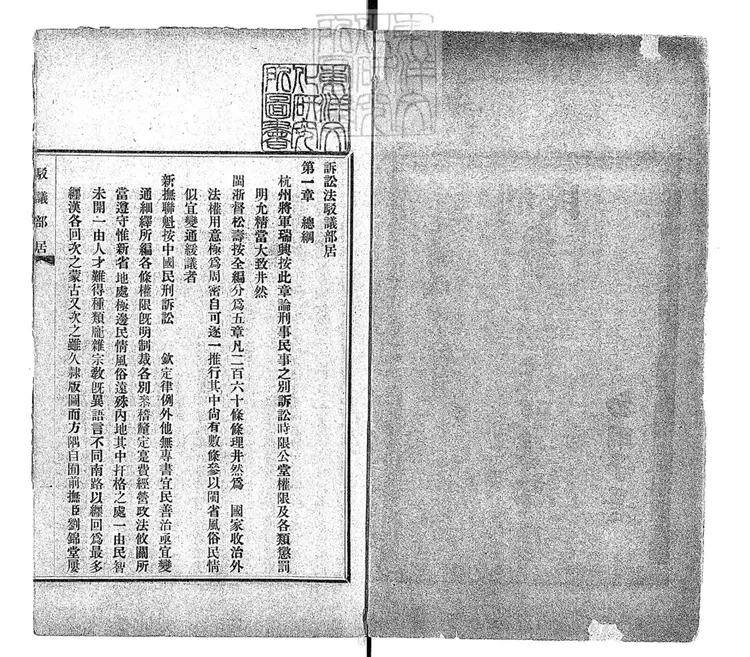 訴訟法駁議部居
第一章　總綱
杭州將軍瑞興按此章論刑事民事之別訴訟時限公堂權限及各類懲罰
明允精當大致井然
閩浙督松壽按全編分爲五章凡二百六十條條理井然爲　國家收治外
法權用意極爲周密自可逐一推行其中尙有數條參以閩省風俗民情
似宜變通緩議者
新撫聯魁按中國民刑訴訟　　欽定律例外他無專書宜民善治亟宜變
通細繹所編各條權限旣明制裁各別參稽釐定寔費經營政法攸關所
當遵守惟新省地處極邊民情風俗遠殊內地其中扞格之處一由民智
未開一由人才難得種類龐雜宗敎旣異語言不同南路以纒回爲最多
纒漢各回次之蒙古又次之雖久隸版圖而方隅自囿前撫臣劉錦堂屢
駁議部居
東洋文化硏究所圖書